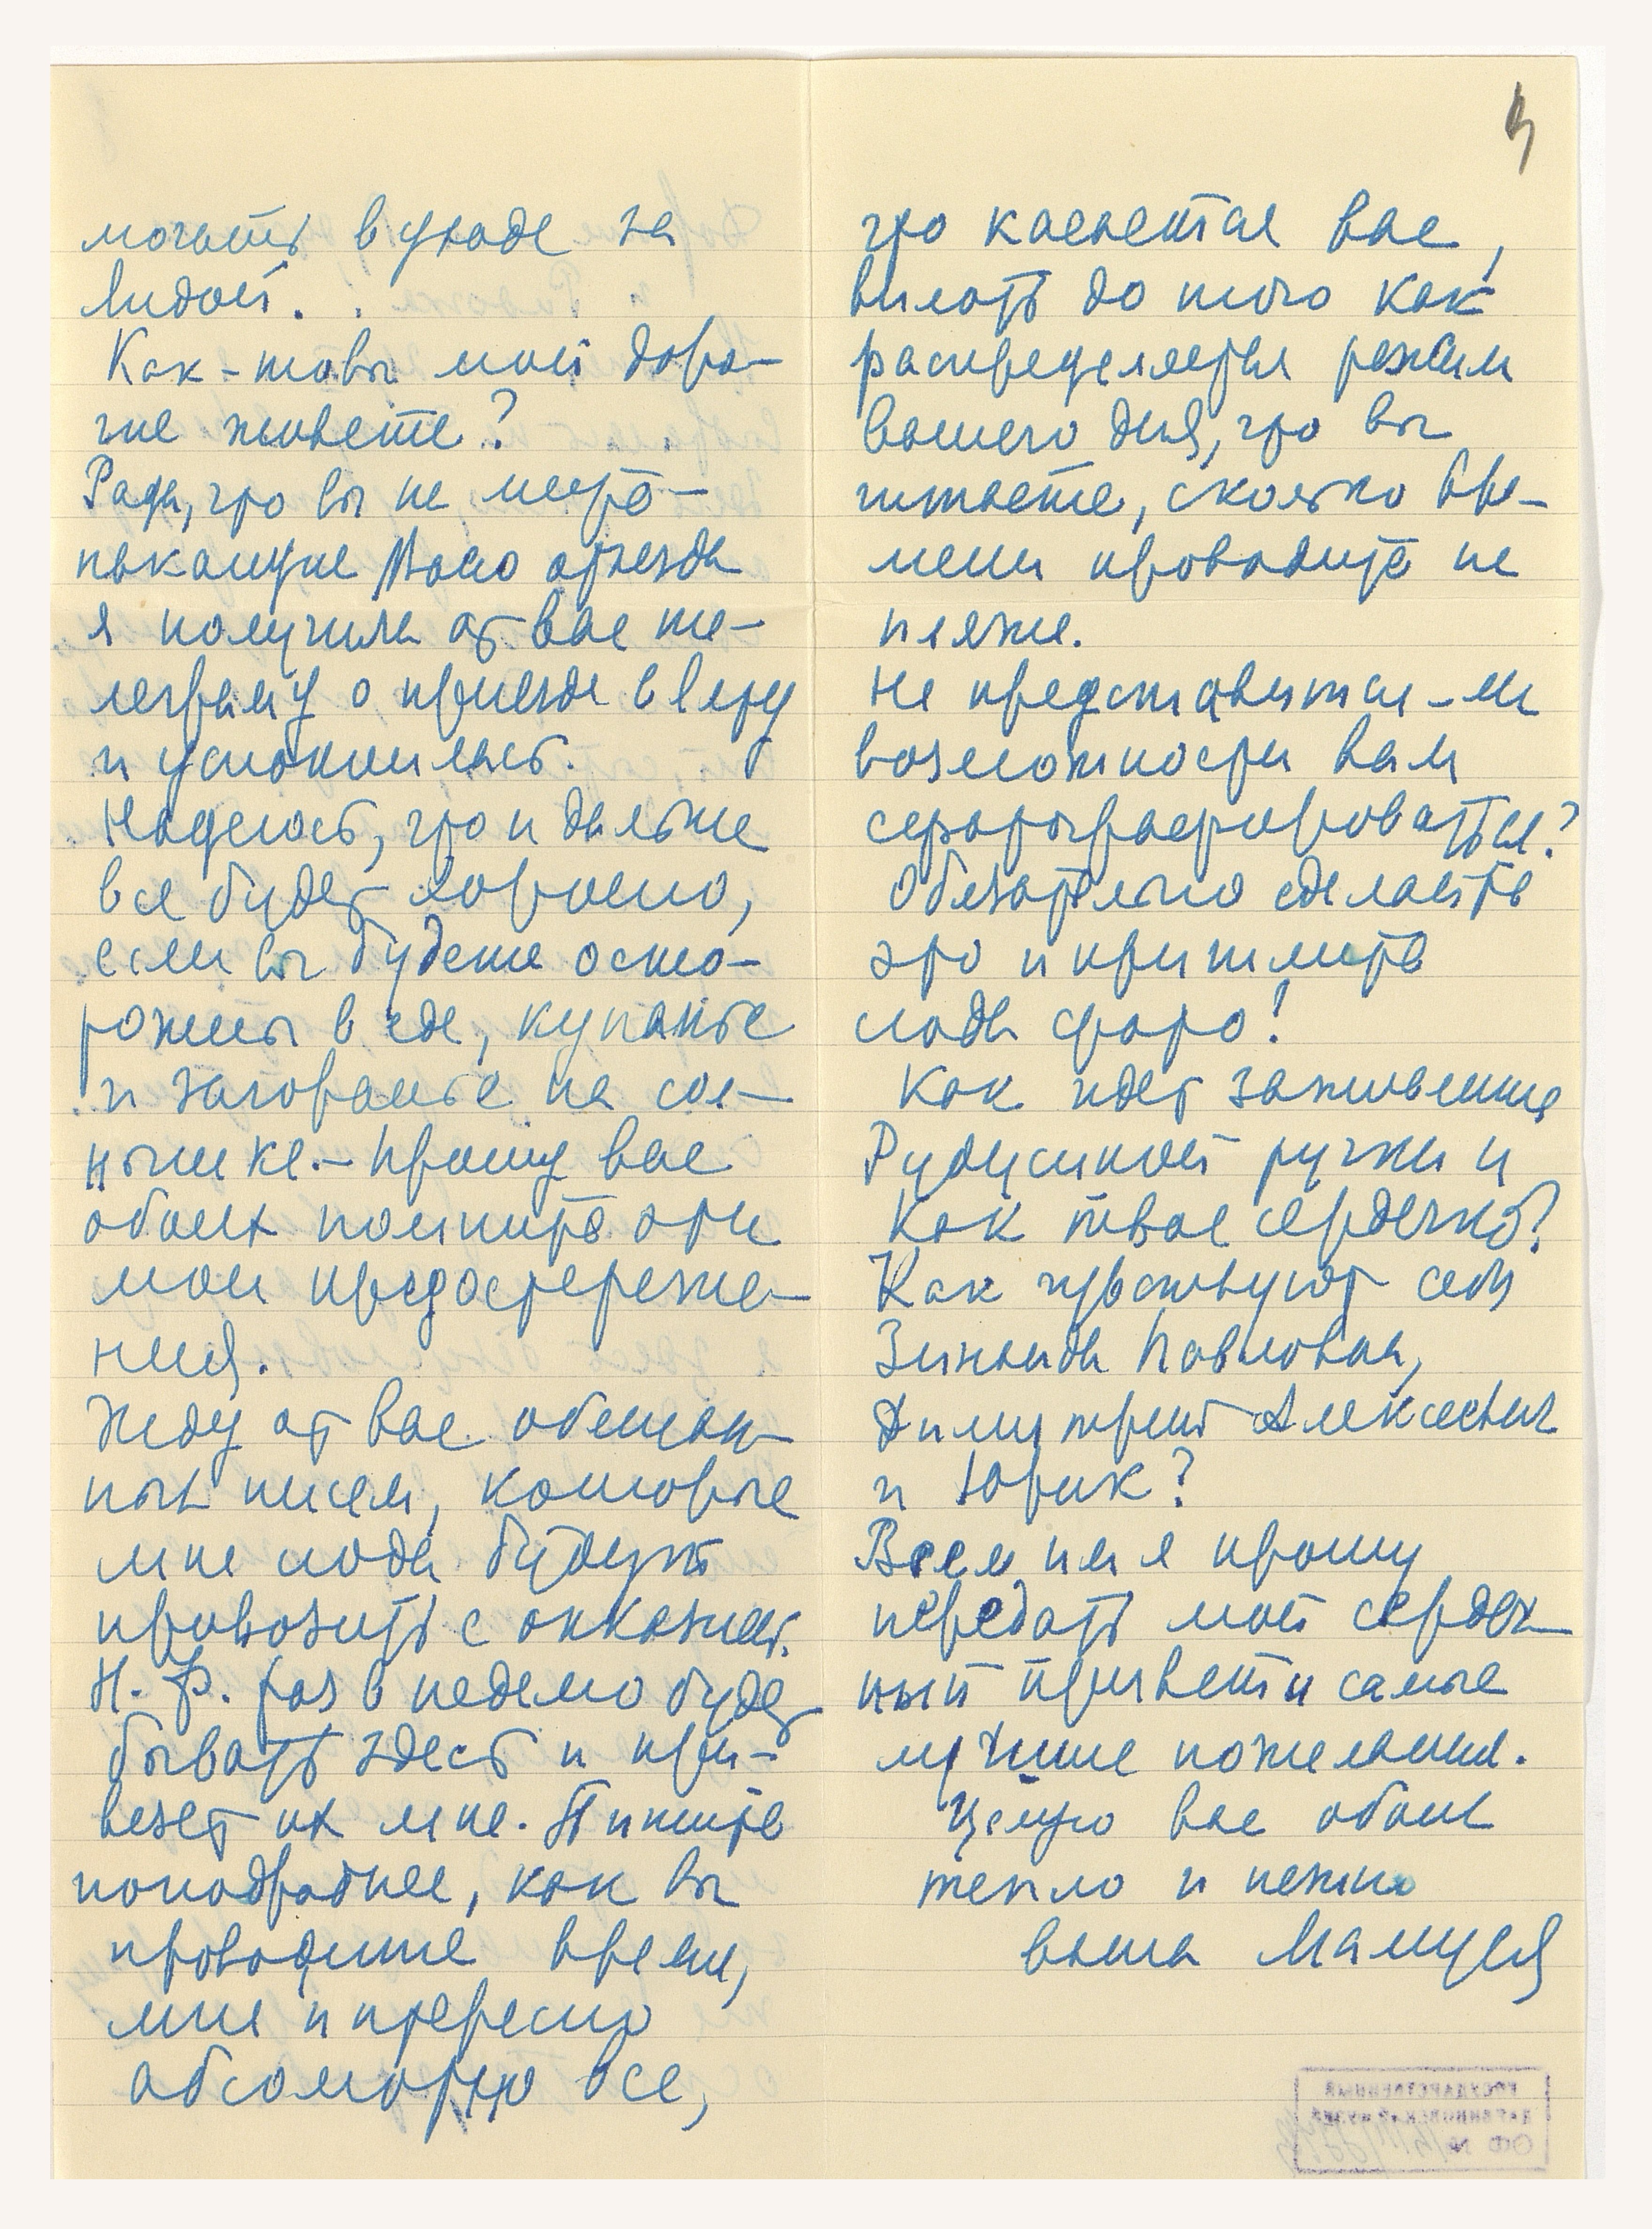 могать в уходе за
Лидой.
Как-то вы мои доро-
гие живете?
Рада, что вы не
накануне Моего отъезда
я получила от вас те-
леграмму о приезде в
и успокоилась.
Надеюсь, что и дальше
все будет хорошо,
если вы будете осто-
рожны в еде, купанье
и загораньe на сол-
нышке. – Прошу вас
обоих помнить эти
мои предостереже-
ния.
Жду от вас обещан-
ных писем, которые
мне сюда будут
привозить с оказией.
Н. Р. раз в неделю будет
бывать здесь и при-
везет их мне. Пишите
поподробнее, как вы
проводите время,
мне интересно
абсолютно все,
что касается вас,
вплоть до того как
распределяется режим
вашего дня, что вы
читаете, сколько вре-
мени проводите на
пляже.
Не представится-ли
возможности вам
сфотографироваться?
Обязательно сделайте
это и пришлите
сюда фото!
Как идет заживление
Рудусиной ручки и
как твое сердечко?
Как чувствуют себя
Зинаида Павловна,
Димитрий Алексеевич
и Юрик?
Всем им я прошу
передать мой сердеч-
ный привет и самые
лучшие пожелания.
Целую вас обоих
тепло и нежно
ваша Мамуся
ГОСУДАРСТВЕННЫЙ
ДАРВИНОВСКИЙ МУЗЕЙ
ОФ №